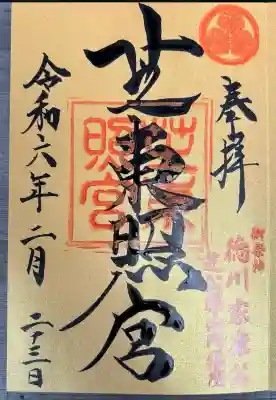 奉拝
芝東照宮
令和六年二月二十三日
御祭神
徳川家康公